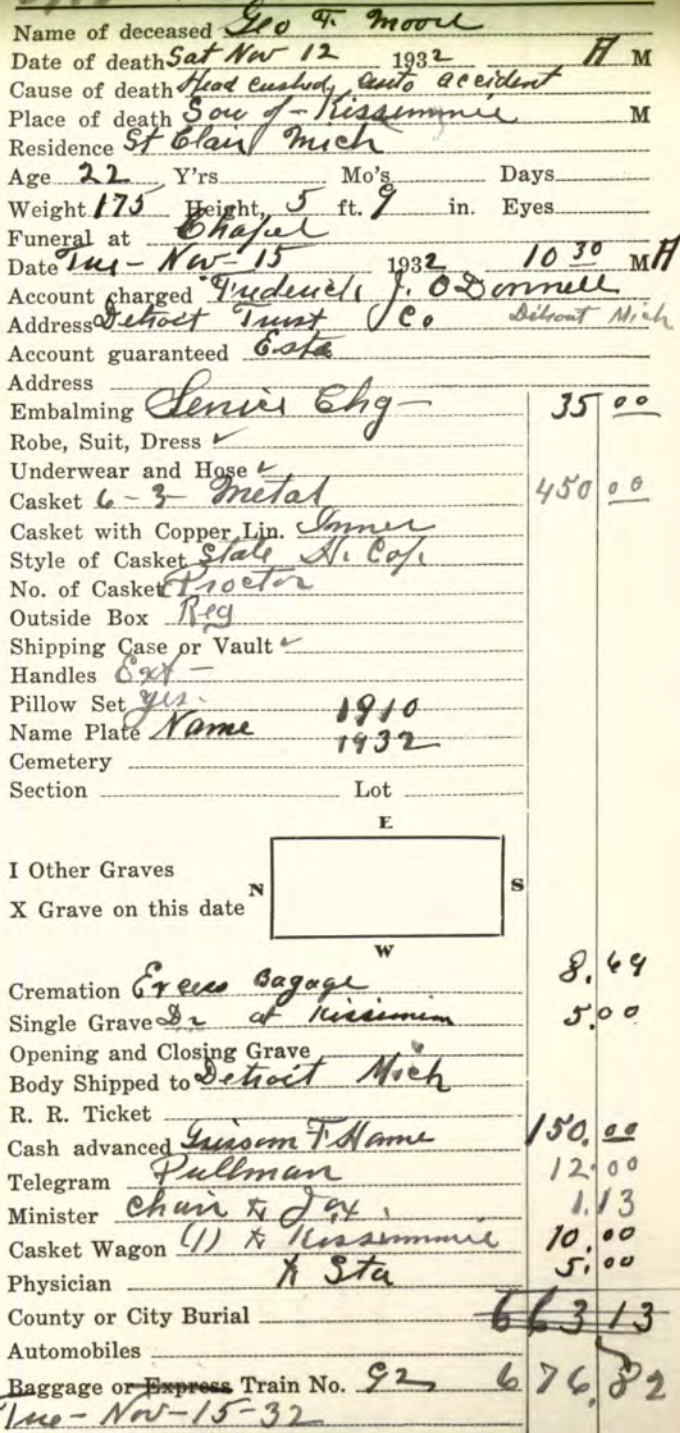 Name of deceased Geo T. Moore
Date of death Sat Nov 12 1932 A M
Cause of death Head cushed, auto accident
Place of death Sou of - Kissimmie M
Residence St Clair Mich
Age 22 Y'rs Mo's Days
Weight 175 Height, 5 ft. 9 in. Eyes
Funeral at Chapel
Date Tue - Nov - 15 1932 10 30 M A
Account charged Frederick J. ODonnell
Address Detroit Trust Co Detroit Mich
Account guaranteed Esta
Address
Embalming Service Chg - 35 00
Robe, Suit, Dress ✓
Underwear and Hose ✓
Casket 6-3- Metal 450 00
Casket with Copper Lin. Inner
Style of Casket State H. Cop.
No. of Casket Proctor
Outside Box Reg
Shipping Case or Vault ✓
Handles Ext -
Pillow Set yes.
Name Plate Name 1910
1932
Cemetery
Section Lot
E
I Other Graves
N S
X Grave on this date
W
Cremation Excess Bagage 8.69
Single Grave Dr at Kissimim 5.00
Opening and Closing Grave
Body Shipped to Detroit Mich
R. R. Ticket
Cash advanced Grissom F Home 150.00
Telegram Pullman 12.00
Minister Chair to Jax. 1.13
Casket Wagon (1) to Kissimmie 10.00
Physician to Sta 5.00
County or City Burial 663 13
Automobiles
Baggage or Express Train No. 92 676.82
Tue - Nov - 15 - 32